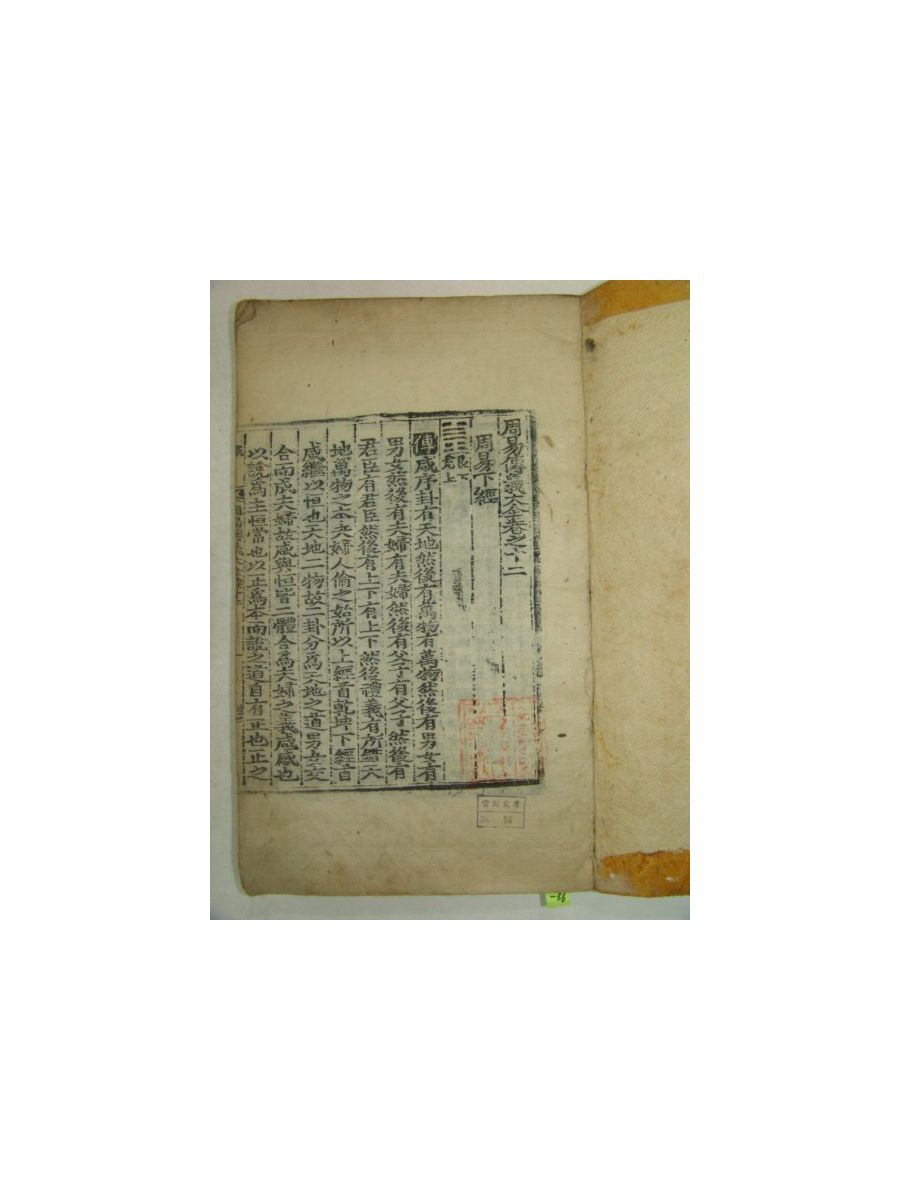 周易傳義大全卷之十二
周易下經
艮下
兌上
傳咸序卦有天地然後有萬物有萬物然後有男女有
男女然後有夫婦有夫婦然後有父子有父子然後有
君臣有君臣然後有上下有上下然後禮義有所錯天
地萬物之本夫婦人倫之始所以上經首乾坤下經首
咸繼以恒也天地二物故二卦分爲天地之道男女交
合而成夫婦故咸與恒皆二體合爲夫婦之義咸感也
以說爲主恒常也以正爲本而說之道自有正也正之
文庫
56
-56